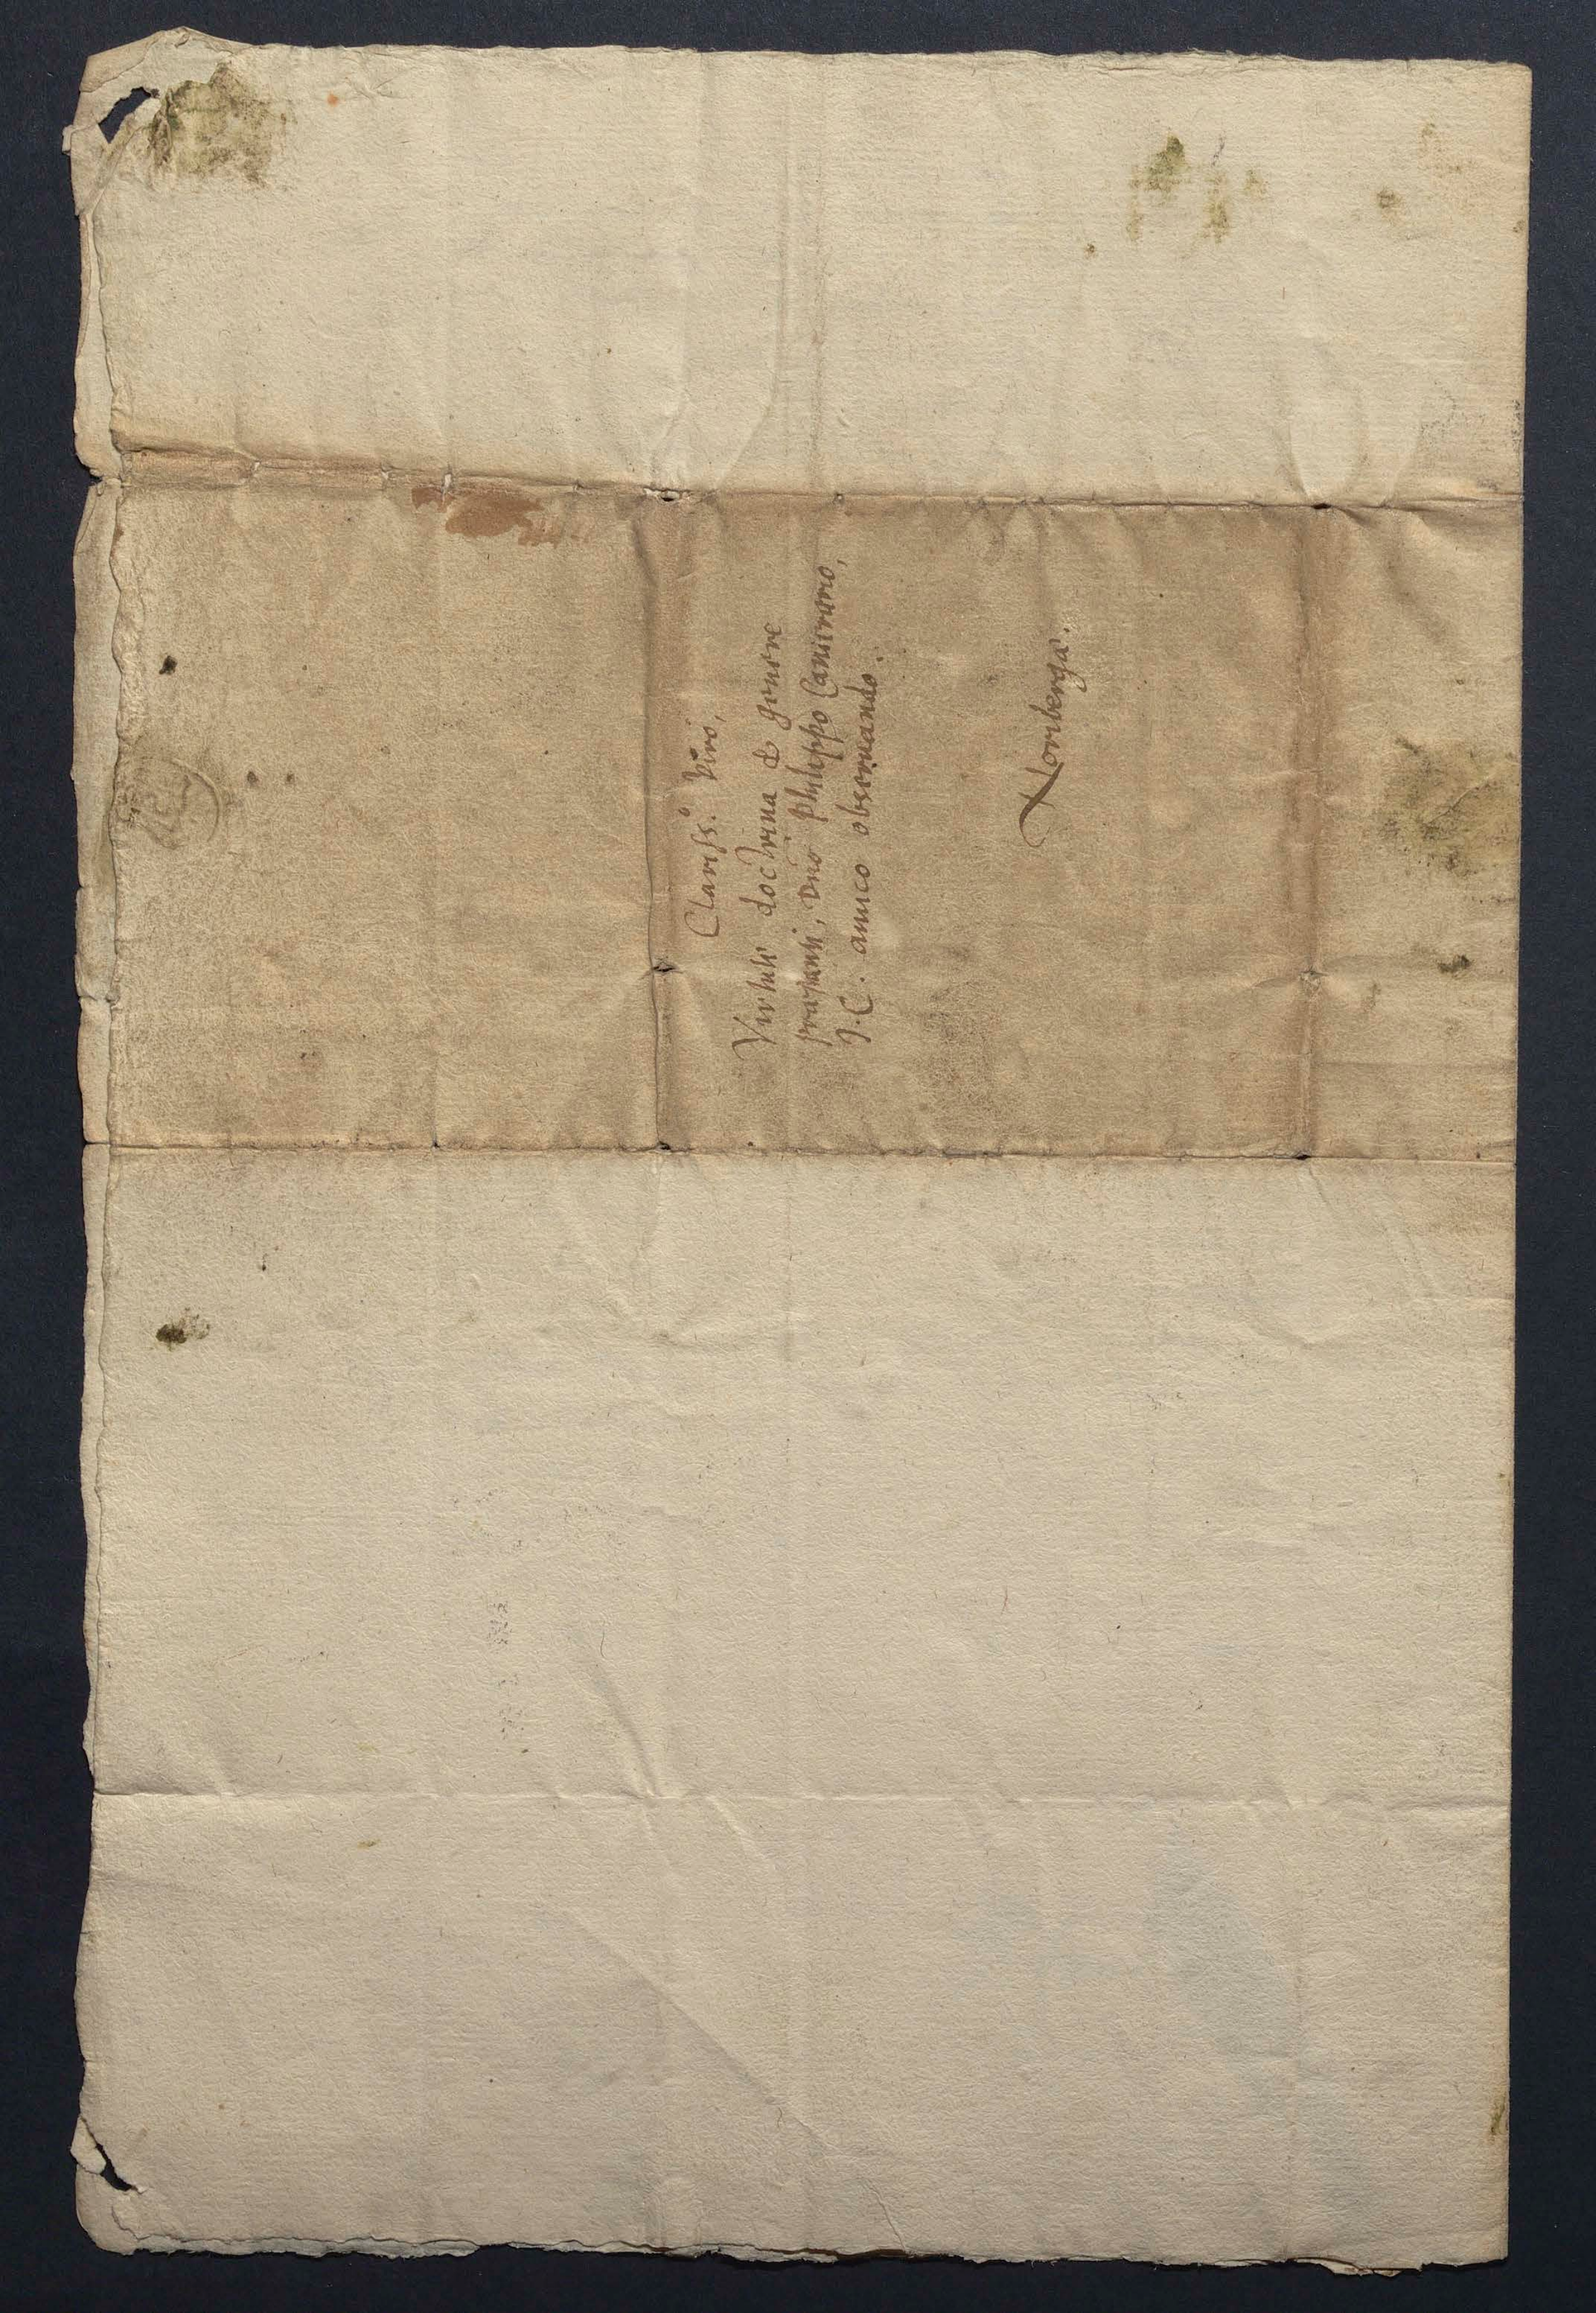 Clariss.º Viro,
Virtute doctrina & genere
præstanti, Dnō Philippo Camerario,
J.C. amico obseruando.
Noribergā.